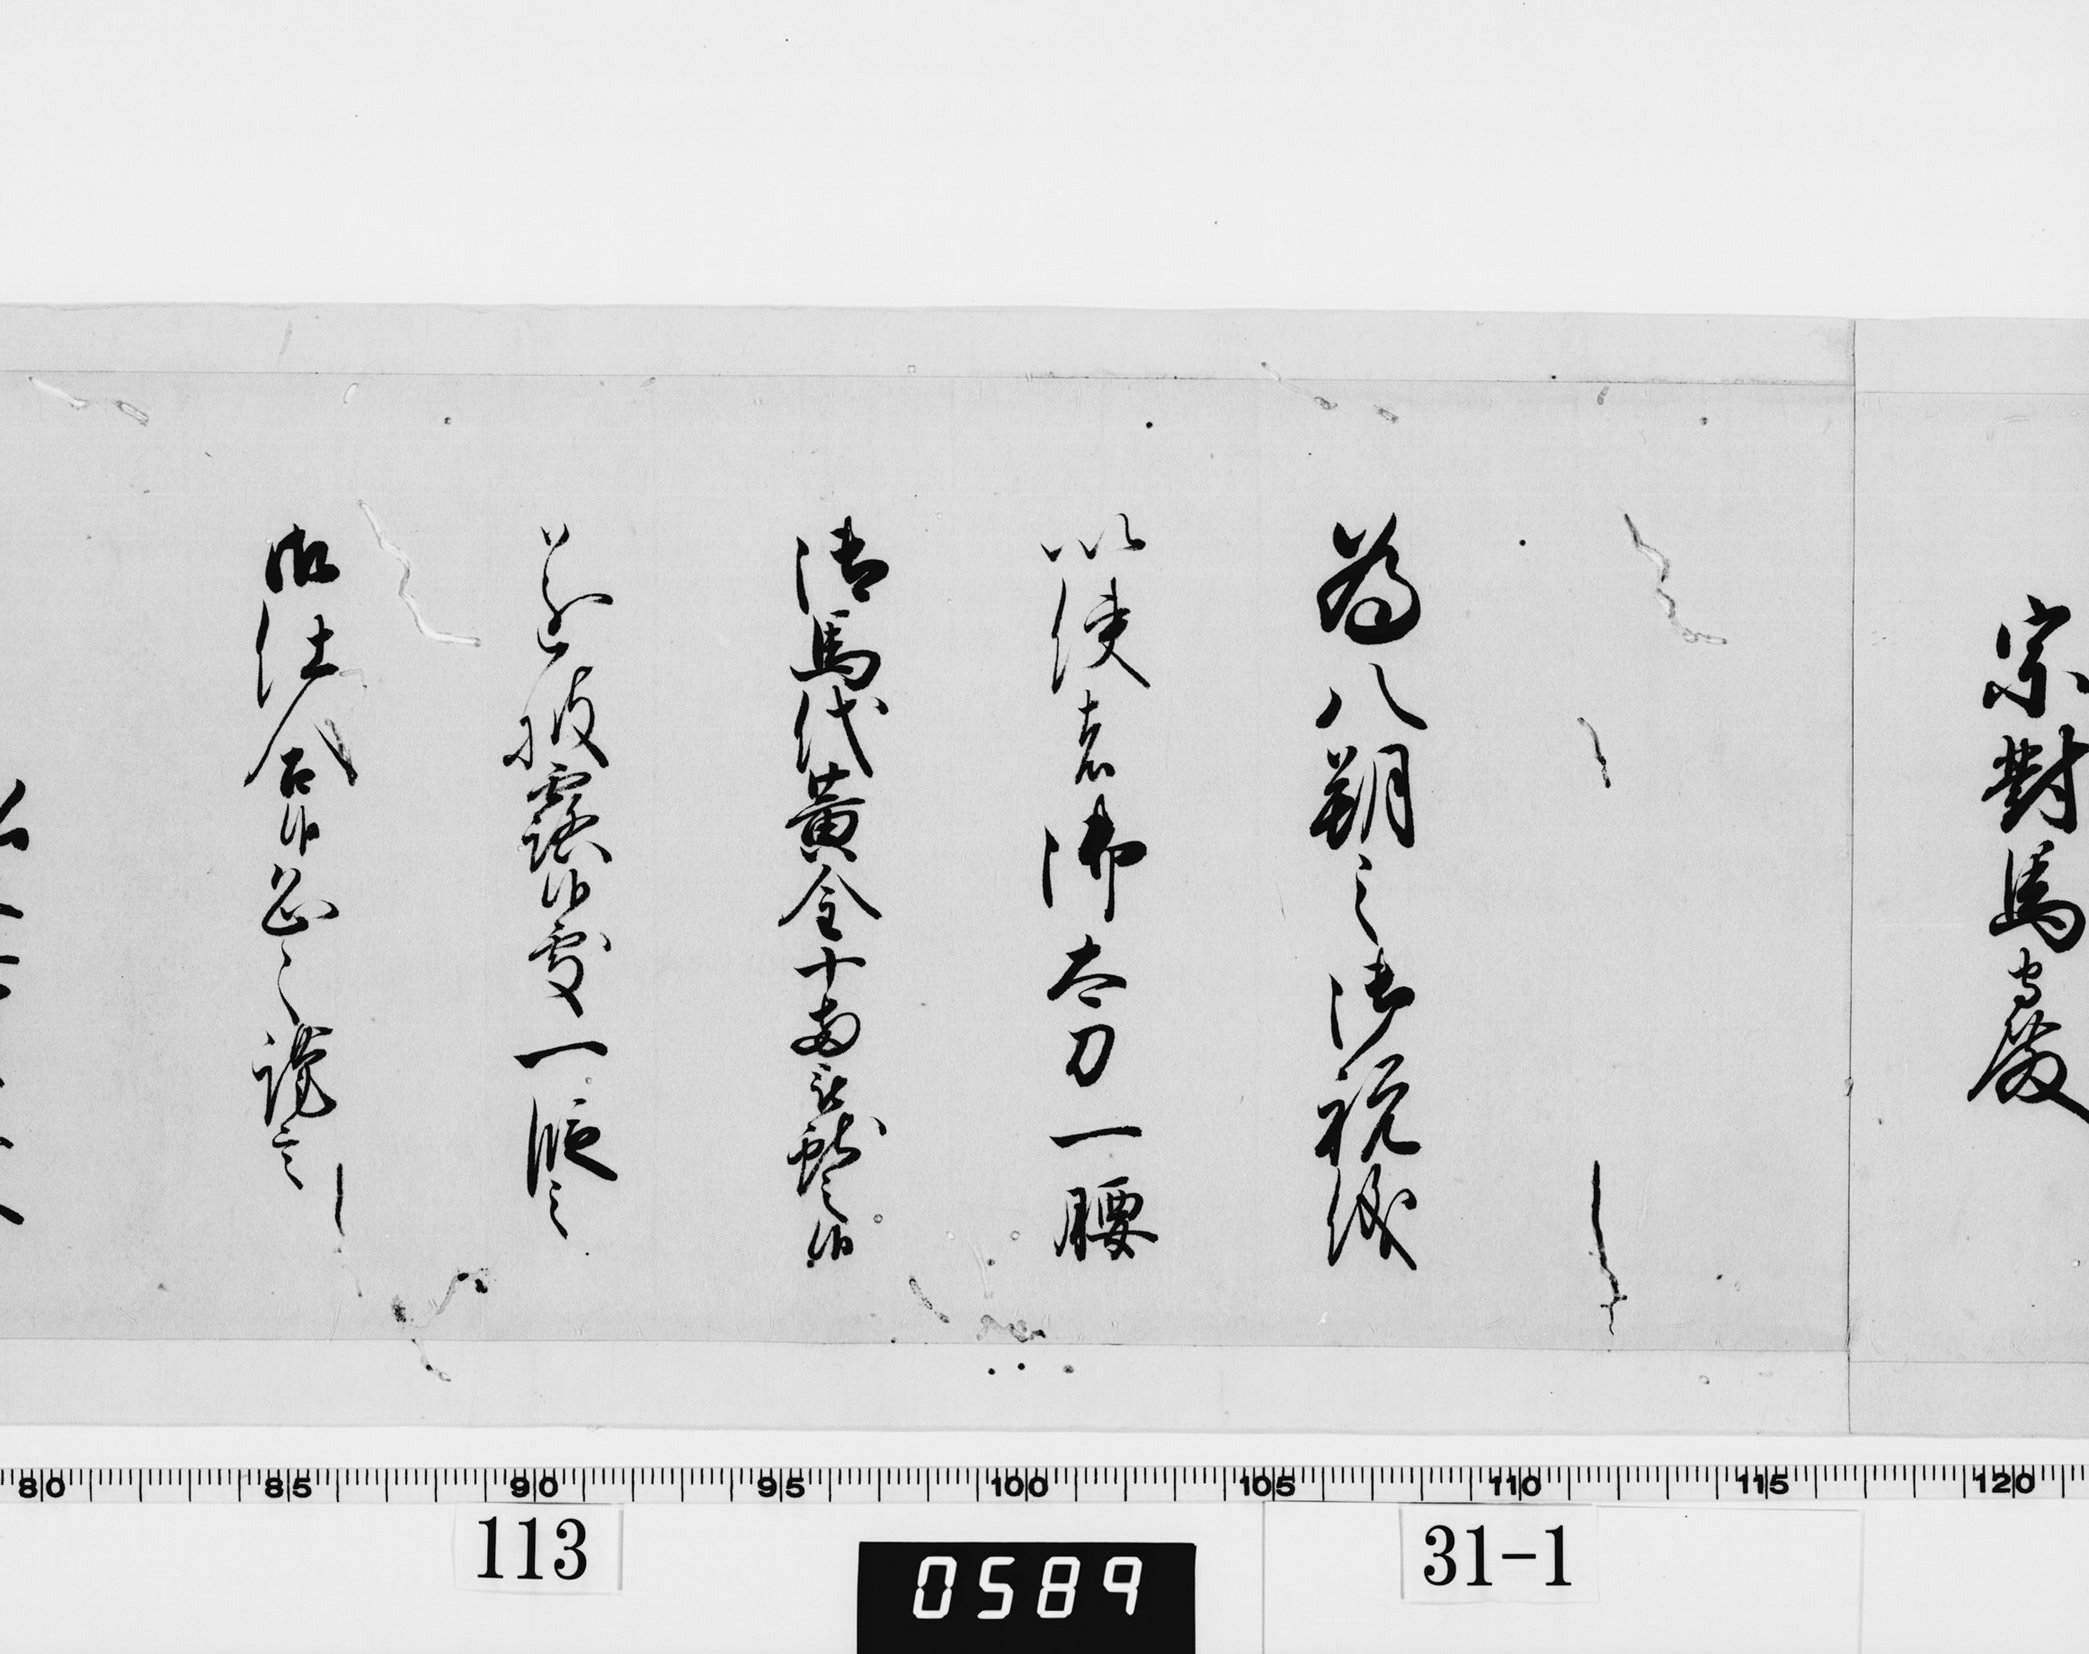 宗對馬守殿
為八朔之御祝儀
以使者御太刀一腰
御馬代黄金十両献之候
遂披露候處一段之
御仕合候恐々謹言
80 85 90 95 100 105 110 115 120
113
0589
31-1